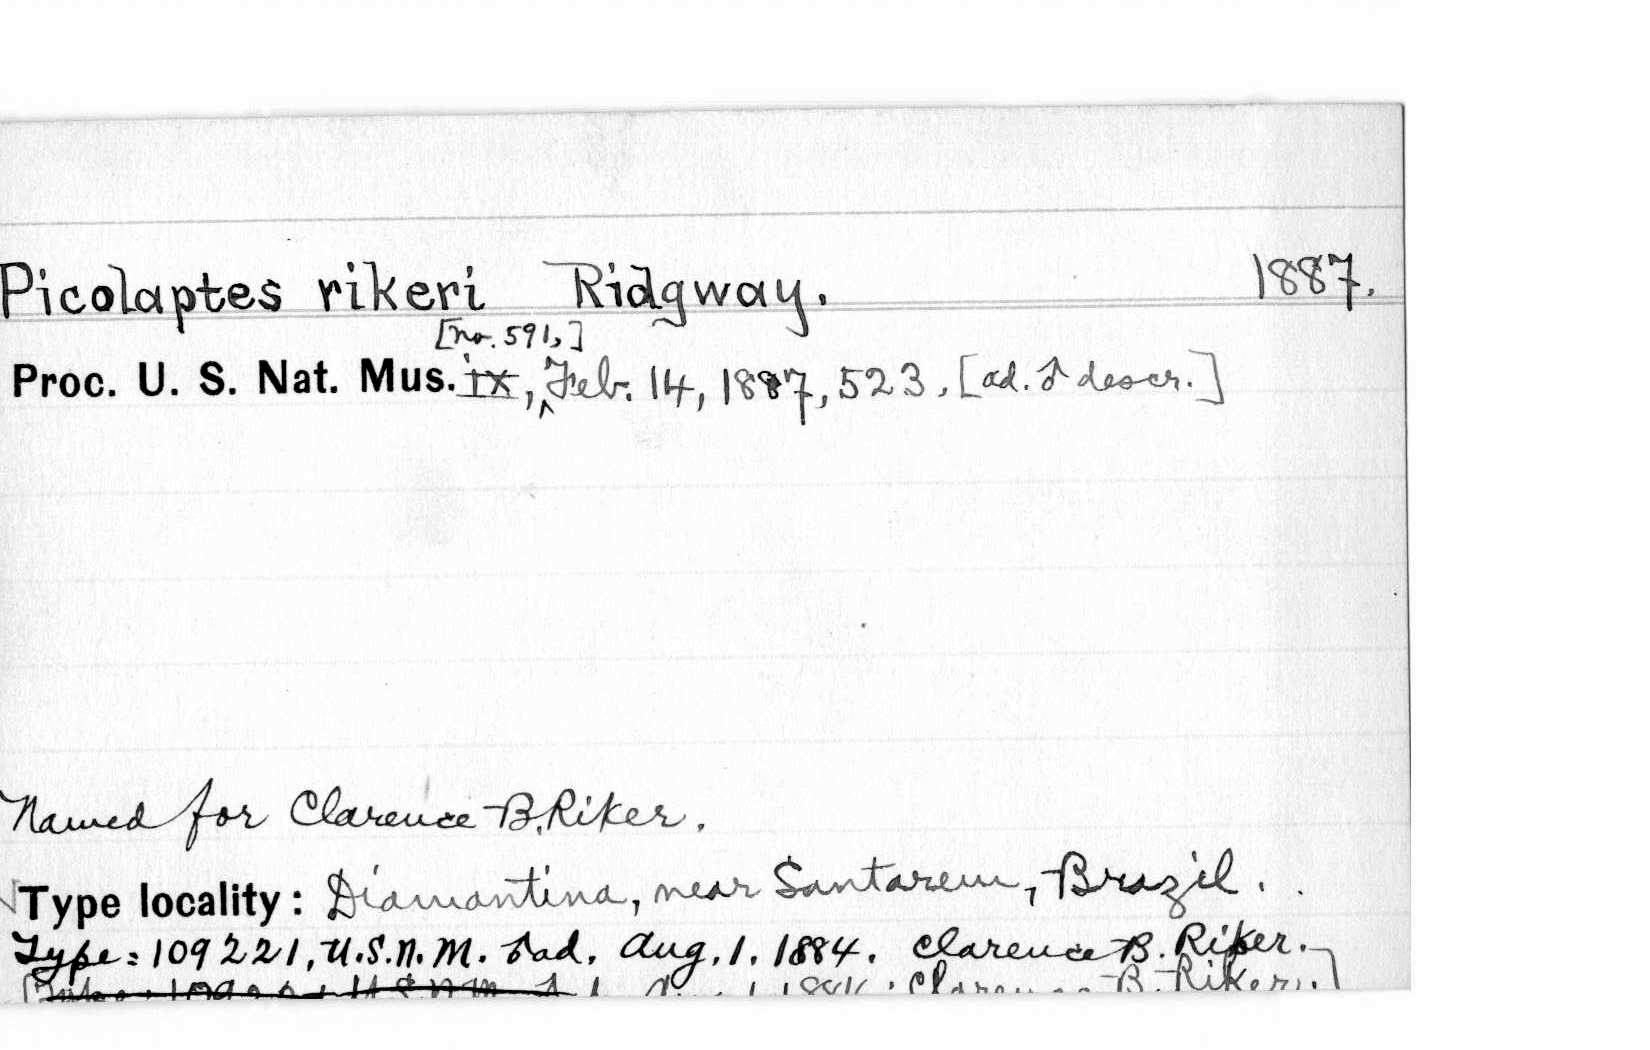 Picolaptes rikeri Ridgway. 1887.
[no. 591,]
Proc. U. S. Nat. Mus. ix, Feb. 14, 1887, 523. [ad. ♂ descr.]
Named for Clarence B. Riker.
Type locality: Diamantina, near Santarem, Brazil.
Type: 109221, U.S.N.M. ♂ ad. Aug. 1. 1884. Clarence B. Riker.
Clarence B. Riker.]